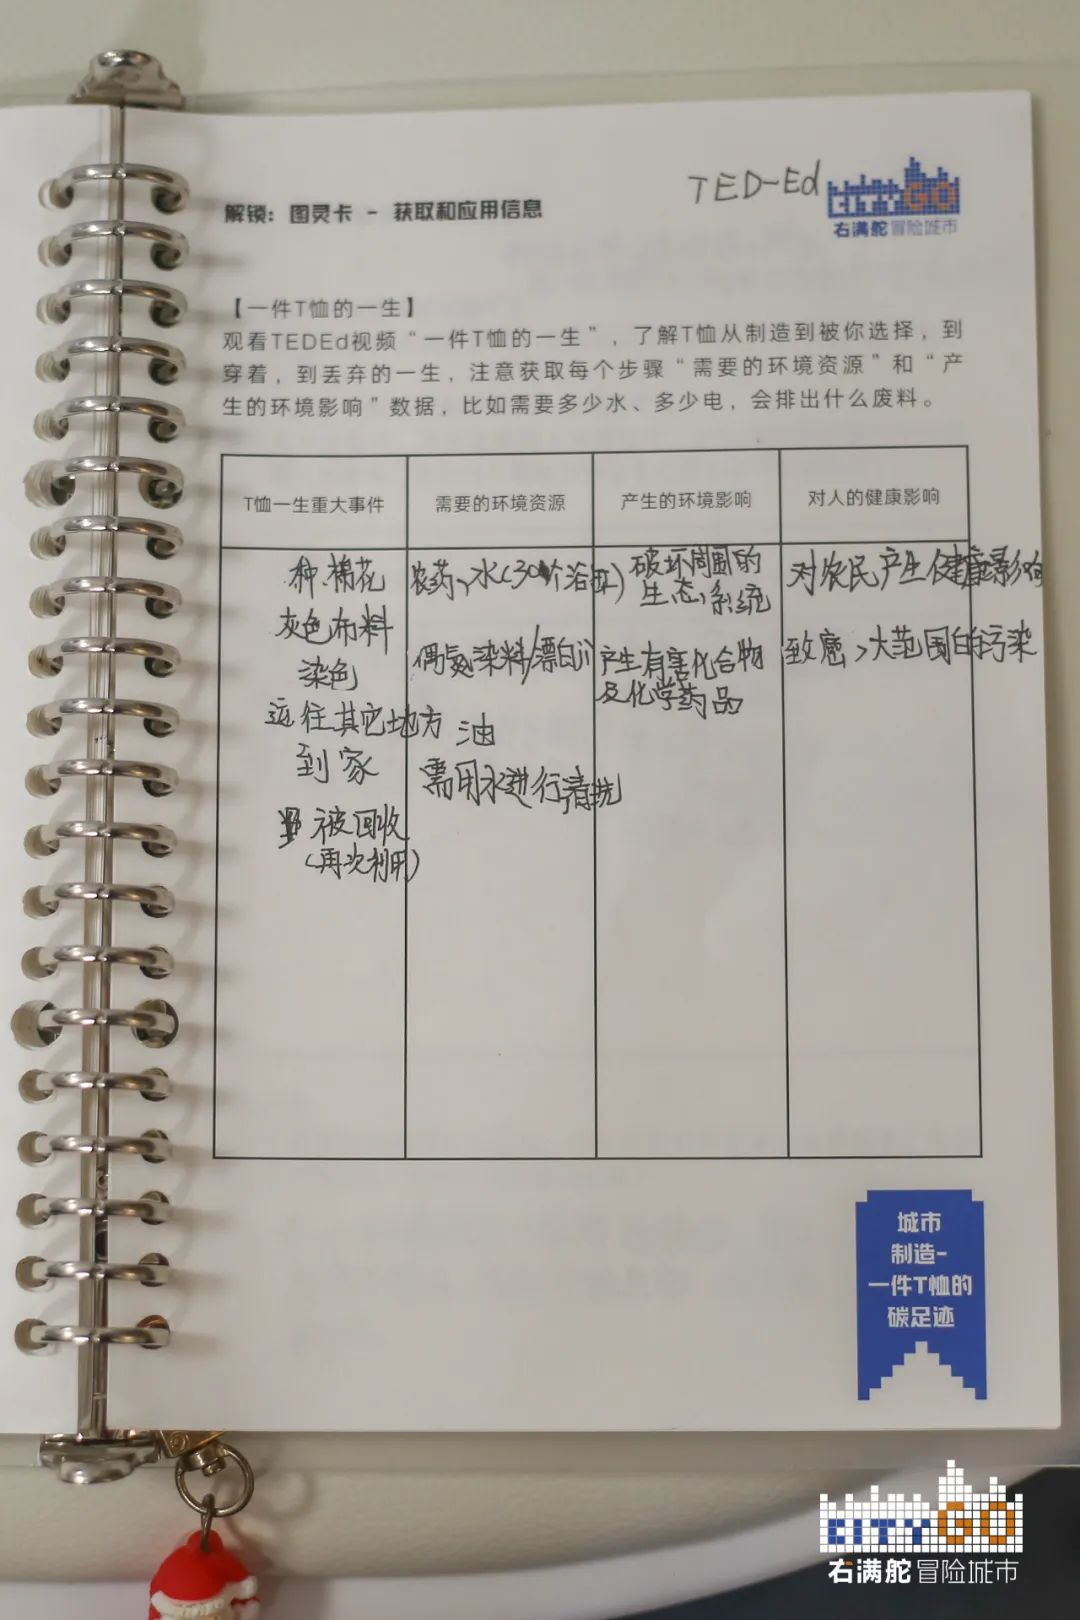 TED-Ed
CITYGO
右满舵 冒险城市
解锁：图灵卡 - 获取和应用信息
【一件T恤的一生】
观看TEDEd视频“一件T恤的一生”，了解T恤从制造到被你选择，到
穿着，到丢弃的一生，注意获取每个步骤“需要的环境资源”和“产
生的环境影响”数据，比如需要多少水、多少电，会排出什么废料。
T恤一生重大事件 需要的环境资源 产生的环境影响 对人的健康影响
种棉花 农药、水(30个浴缸) 破坏周围的 对农民产生健康影响
生态系统
灰色布料
染色 偶氮染料/漂白 产生有害化合物 致癌、大范围的污染
及化学药品
运往其它地方 油
到家 需用水进行清洗
被回收
(再次利用)
城市
制造-
一件T恤的
碳足迹
CITYGO
右满舵 冒险城市